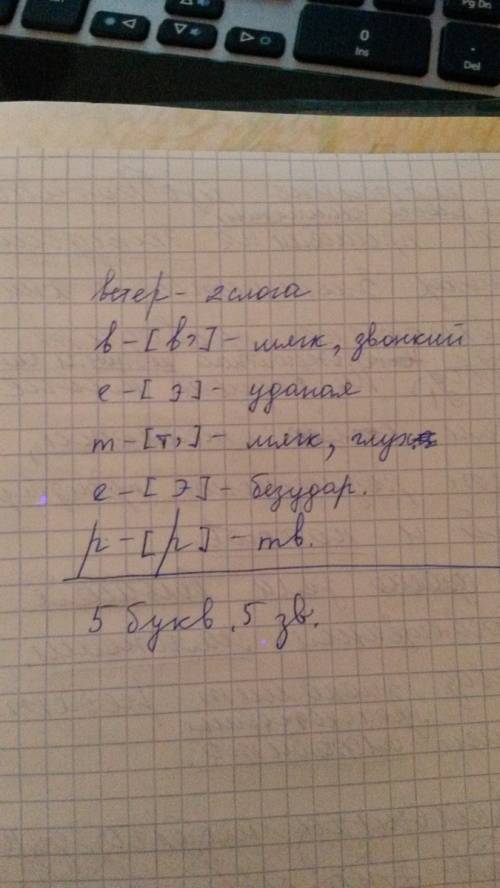 Pg Dn
0
Ins
.
Del
ветер - 2 слога
в - [в,] - мягк, звонкий
е - [э] - уданая
т - [т,] - мягк, глух
е - [э] - безудар.
р - [р] - тв.
5 букв, 5 зв.